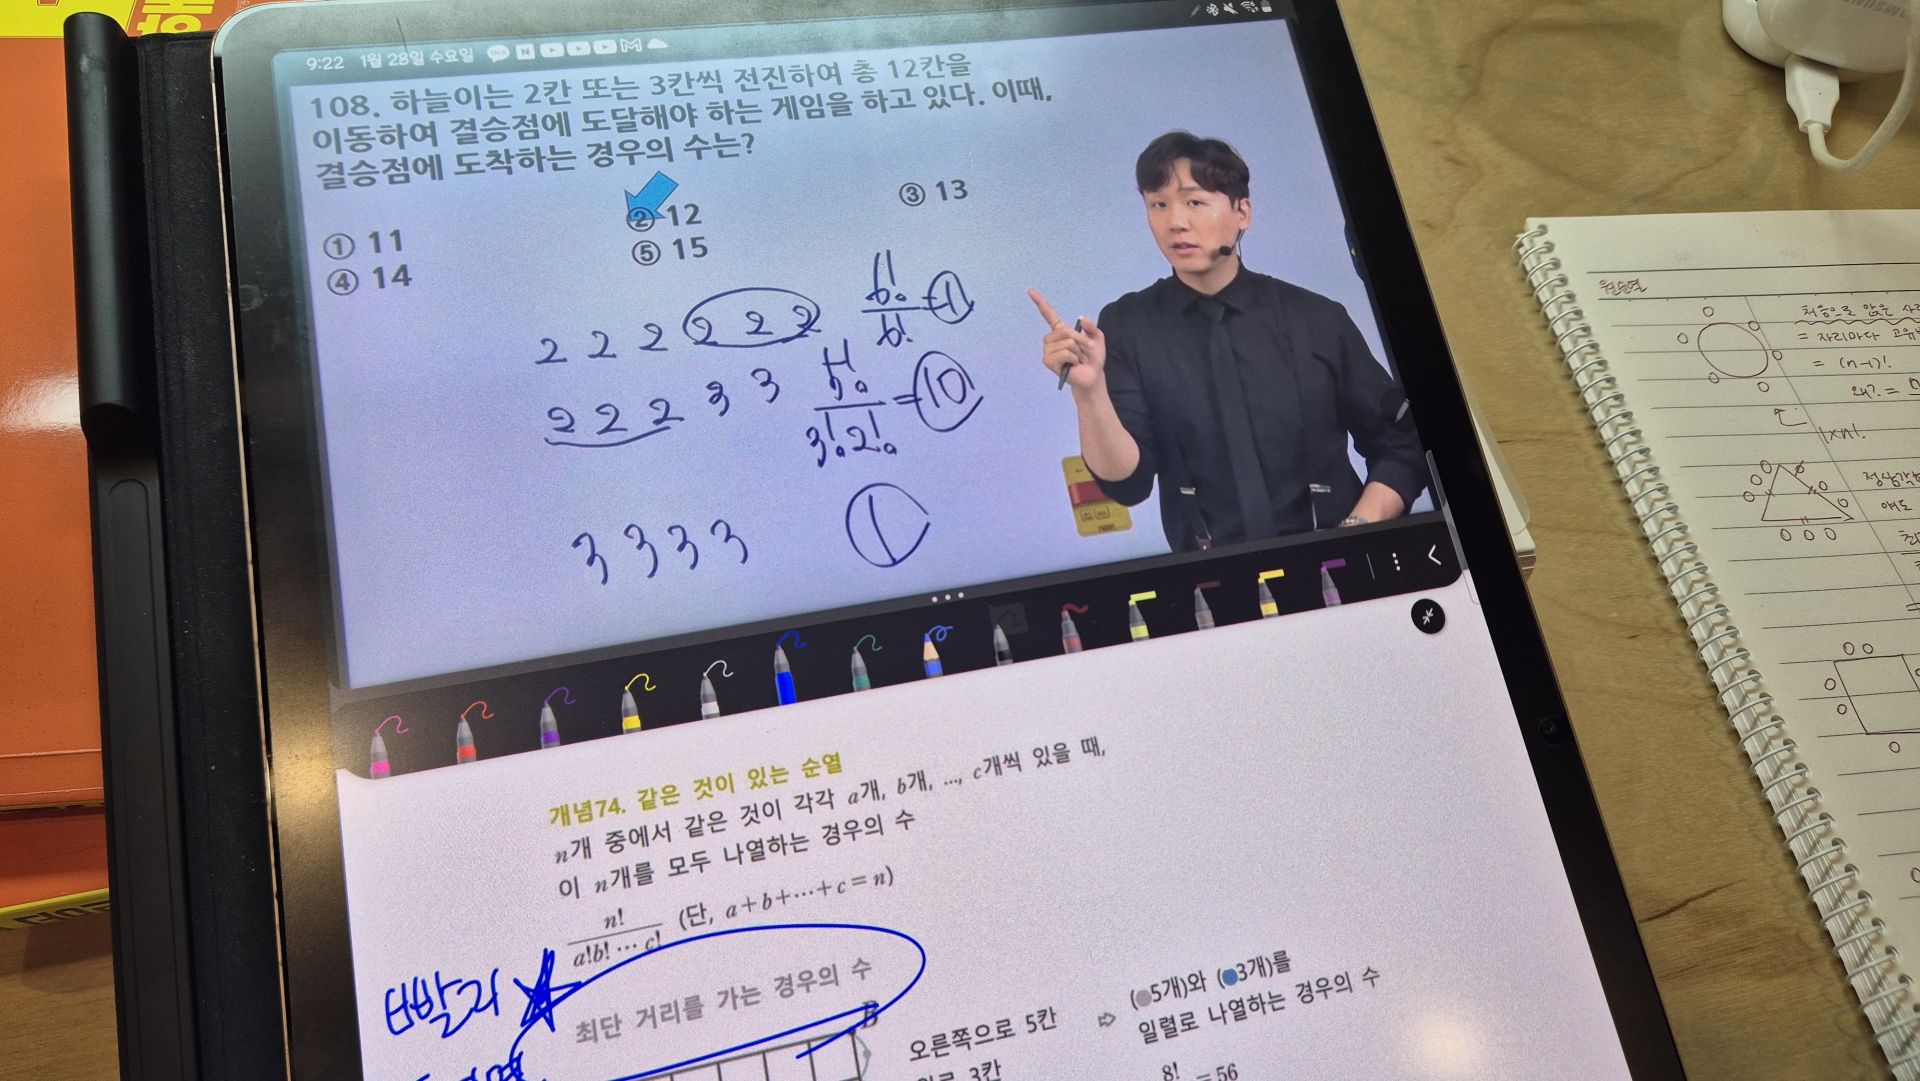 9:22 1월 28일 수요일
108. 하늘이는 2칸 또는 3칸씩 전진하여 총 12칸을
이동하여 결승점에 도달해야 하는 게임을 하고 있다. 이때,
결승점에 도착하는 경우의 수는?
① 11
② 12
③ 13
④ 14
⑤ 15
2 2 2 2 2 2 6!/6! = 1
2 2 2 3 3 5!/3!2! = 10
3 3 3 3 1
개념74. 같은 것이 있는 순열
n개 중에서 같은 것이 각각 a개, b개, ..., c개씩 있을 때,
이 n개를 모두 나열하는 경우의 수
n!/a!b! ⋯ c! (단, a+b+⋯+c=n)
최단 거리를 가는 경우의 수
B
오른쪽으로 5칸
3칸
⇨ (5개)와 (3개)를
일렬로 나열하는 경우의 수
8! = 56
원순열
처음으로 앉은
= 자리마다
= (n-1)!
왜? =
1×n!
SAMSUNG